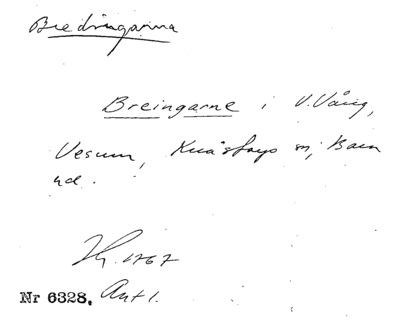 Bredingarna
Breingarne i V.Vång,
Vesum, Knästorps sn, Bara
hd.
Hy. 1767
Nr 6328, Ant 1.